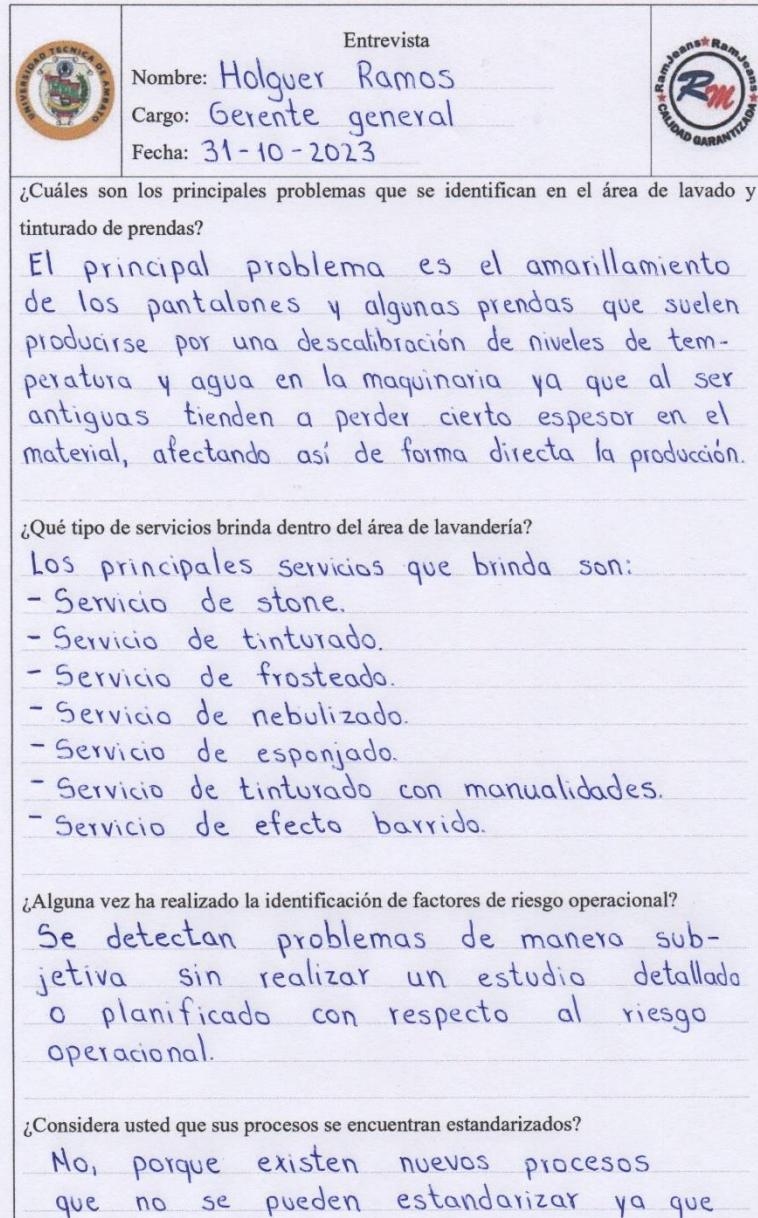 UNIVERSIDAD TECNICA DE AMBATO
Entrevista
Nombre: Holguer Ramos
Cargo: Gerente general
Fecha: 31-10-2023
RamJeans RamJeans
RM
CALIDAD GARANTIZADA
¿Cuáles son los principales problemas que se identifican en el área de lavado y
tinturado de prendas?
El principal problema es el amarillamiento
de los pantalones y algunas prendas que suelen
producirse por una descalibración de niveles de tem-
peratura y agua en la maquinaria ya que al ser
antiguas tienden a perder cierto espesor en el
material, afectando así de forma directa la producción.
¿Qué tipo de servicios brinda dentro del área de lavandería?
Los principales servicios que brinda son:
- Servicio de stone.
- Servicio de tinturado.
- Servicio de frosteado.
- Servicio de nebulizado.
- Servicio de esponjado.
- Servicio de tinturado con manualidades.
- Servicio de efecto barrido.
¿Alguna vez ha realizado la identificación de factores de riesgo operacional?
Se detectan problemas de manera sub-
jetiva sin realizar un estudio detallado
o planificado con respecto al riesgo
operacional.
¿Considera usted que sus procesos se encuentran estandarizados?
No, porque existen nuevos procesos
que no se pueden estandarizar ya que